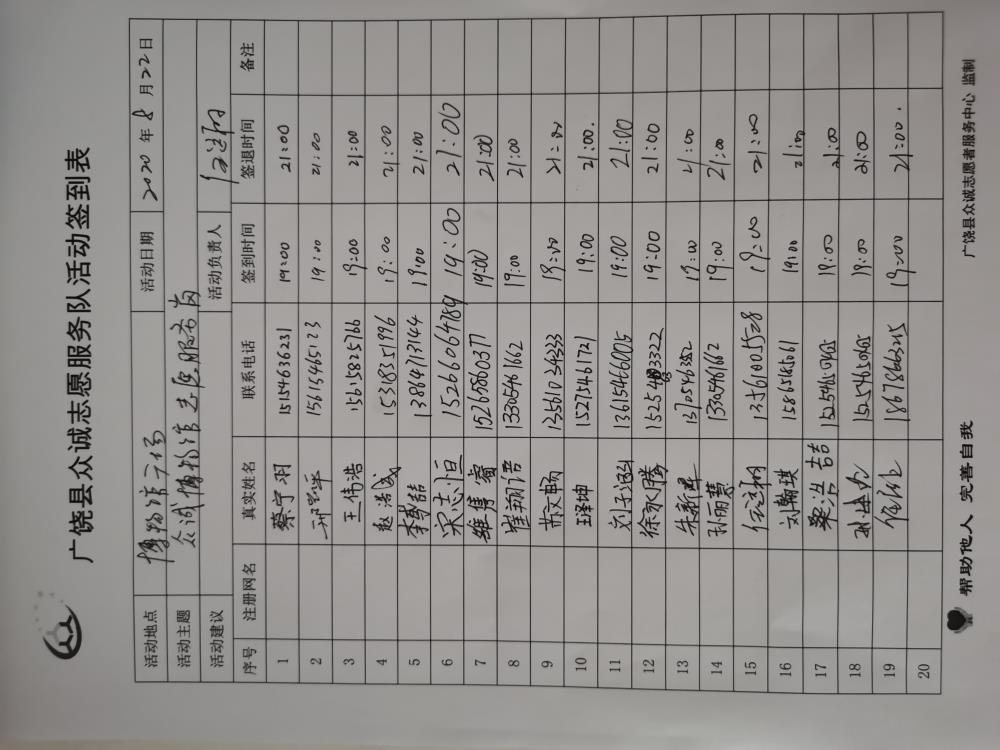 广饶县众诚志愿服务队活动签到表
活动地点 博物馆广场 活动日期 2020 年 8 月 22 日
活动主题 众诚博物馆志愿服务岗
活动建议 活动负责人
序号 注册网名 真实姓名 联系电话 签到时间 签退时间 备注
1 蔡宁羽 15154636231 19:00 21:00
2 15615465123 19:00 21:00
3 王伟浩 15615825766 19:00 21:00
4 赵浩成 15318351996 19:00 21:00
5 李喆 13864713144 19:00 21:00
6 宋志恒 15266064789 19:00 21:00
7 15265860377 19:00 21:00
8 崔翔语 13305461662 19:00 21:00
9 苏文畅 13561034333 19:00 21:00
10 王泽坤 15275461721 19:00 21:00.
11 刘子涵 13615466015 19:00 21:00
12 徐永腾 3322 19:00 21:00
13 朱新军 13705463352 19:00 21:00
14 孙丽慧 13305461662 19:00 21:00
15 13561001528 19:00 21:00
16 刘翰琪 15865185061 19:00 21:00
17 梁洁喆 19:00 21:00
18 19:00 21:00
19 18678663215 19:00 21:00.
20
帮助他人 完善自我 广饶县众诚志愿者服务中心 监制